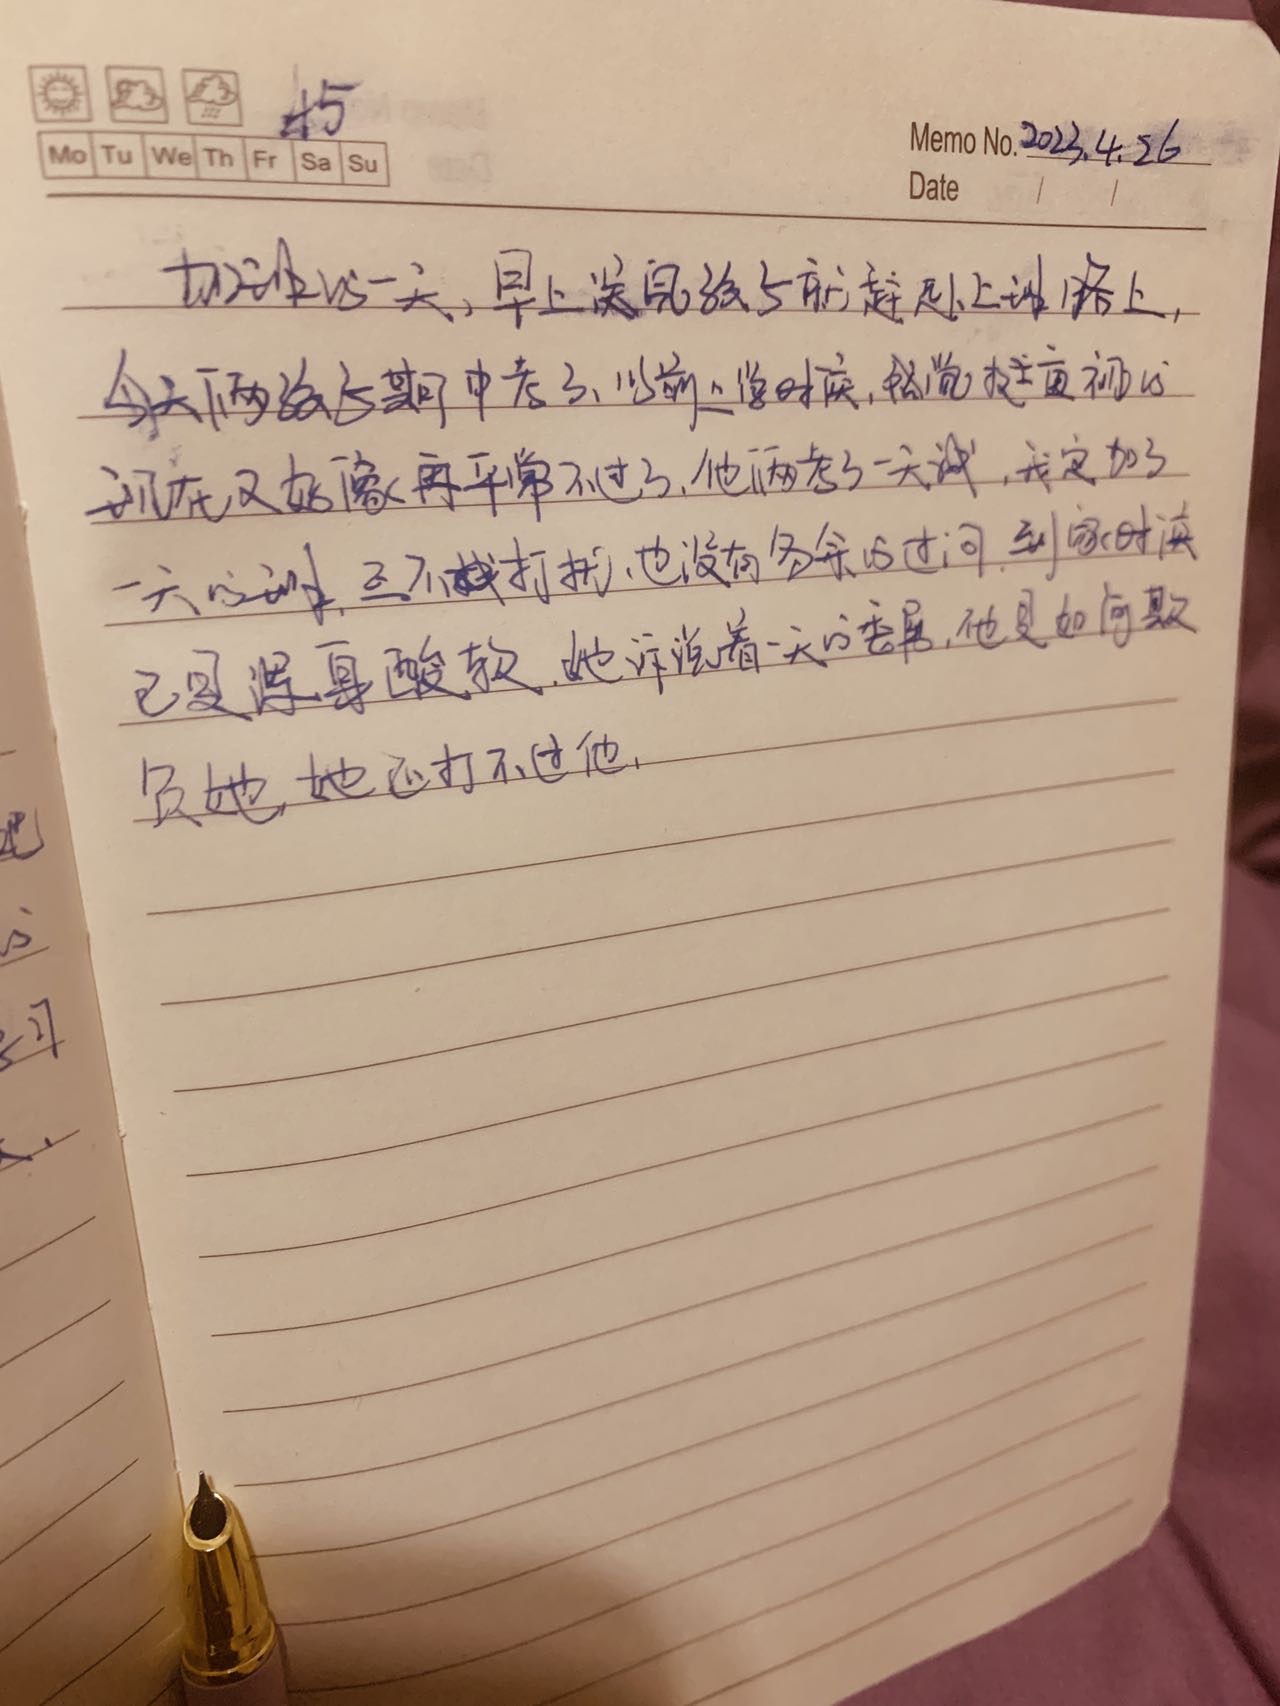 45
Mo Tu We Th Fr Sa Su
Memo No. 2023.4.26
Date / /
加班的一天,早上送完孩子就赶赴上班路上,
今天俩孩子期中考了,以前上学时候,我觉挺重视的
现在又好像再平常不过了,他俩考了一天试,我定加了
一天的班,互不打扰,也没有多余的过问,到家时候
已是浑身酸软,她诉说着一天的委屈,他是如何欺
负她,她还打不过他,
地
的
学习